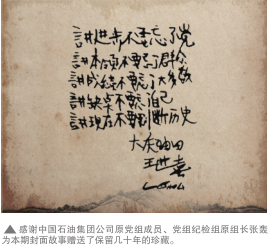 讲进步不要忘了党
讲本领不要忘了群众
讲成绩不要忘了大多数
讲缺点不要忘自己
讲现在不要割断历史
大庆油田
王进喜
▲感谢中国石油集团公司原党组成员、党组纪检组原组长张轰
为本期封面故事赠送了保留几十年的珍藏。